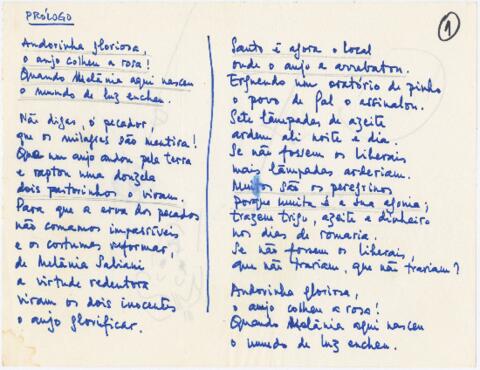 PRÓLOGO
1
Andorinha gloriosa,
o anjo colheu a rosa!
Quando Melânia aqui nasceu
o mundo de luz encheu.
Não digas, ó pecador,
que os milagres são mentira!
Que um anjo andou pela terra
e raptou uma donzela
dois pastorinhos o viram.
Para que a erva dos pecados
não comamos impassíveis
e os costumes reformar,
de Melânia Sabiani
a virtude redentora
viram os dois inocentes
o anjo glorificar.
Santo é agora o local
onde o anjo a arrebatou.
Erguendo um oratório de pinho
o povo de Gal o assinalou.
Sete lâmpadas de azeite
ardem ali noite e dia.
Se não fossem os liberais
mais lâmpadas arderiam.
Muitos são os peregrinos
porque muita é a sua agonia;
trazem trigo, azeite e dinheiro
nos dias de romaria.
Se não fossem os liberais,
que não trariam, que não trariam?
Andorinha gloriosa,
o anjo colheu a rosa!
Quando Melânia aqui nasceu
o mundo de luz encheu.